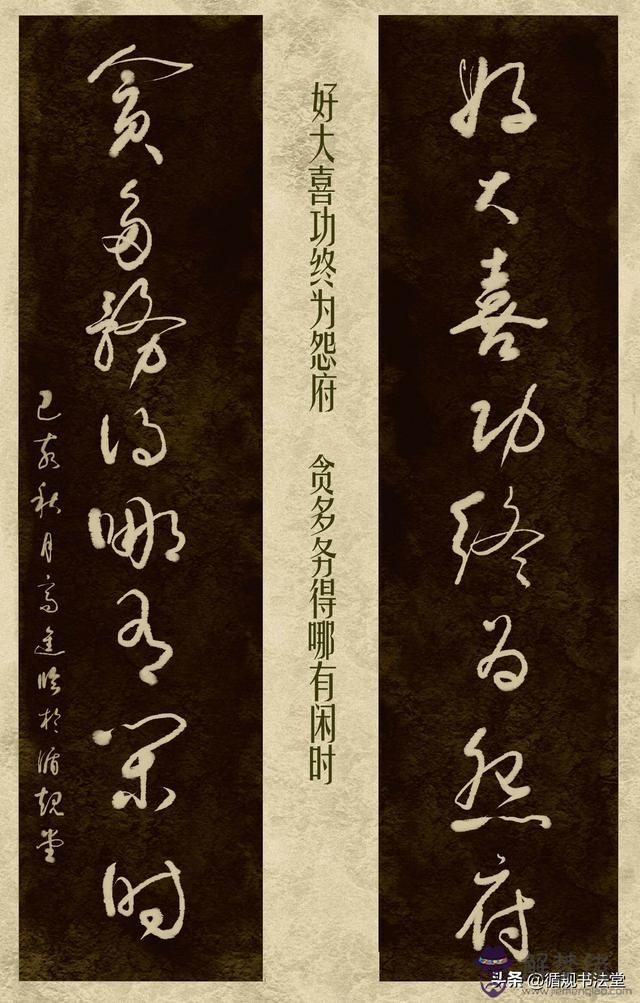 好大喜功终为怨府
好大喜功终为怨府 贪多务得哪有闲时
貪多務得哪有闲时
己亥秋月高進临於循规堂
头条 @循规书法堂